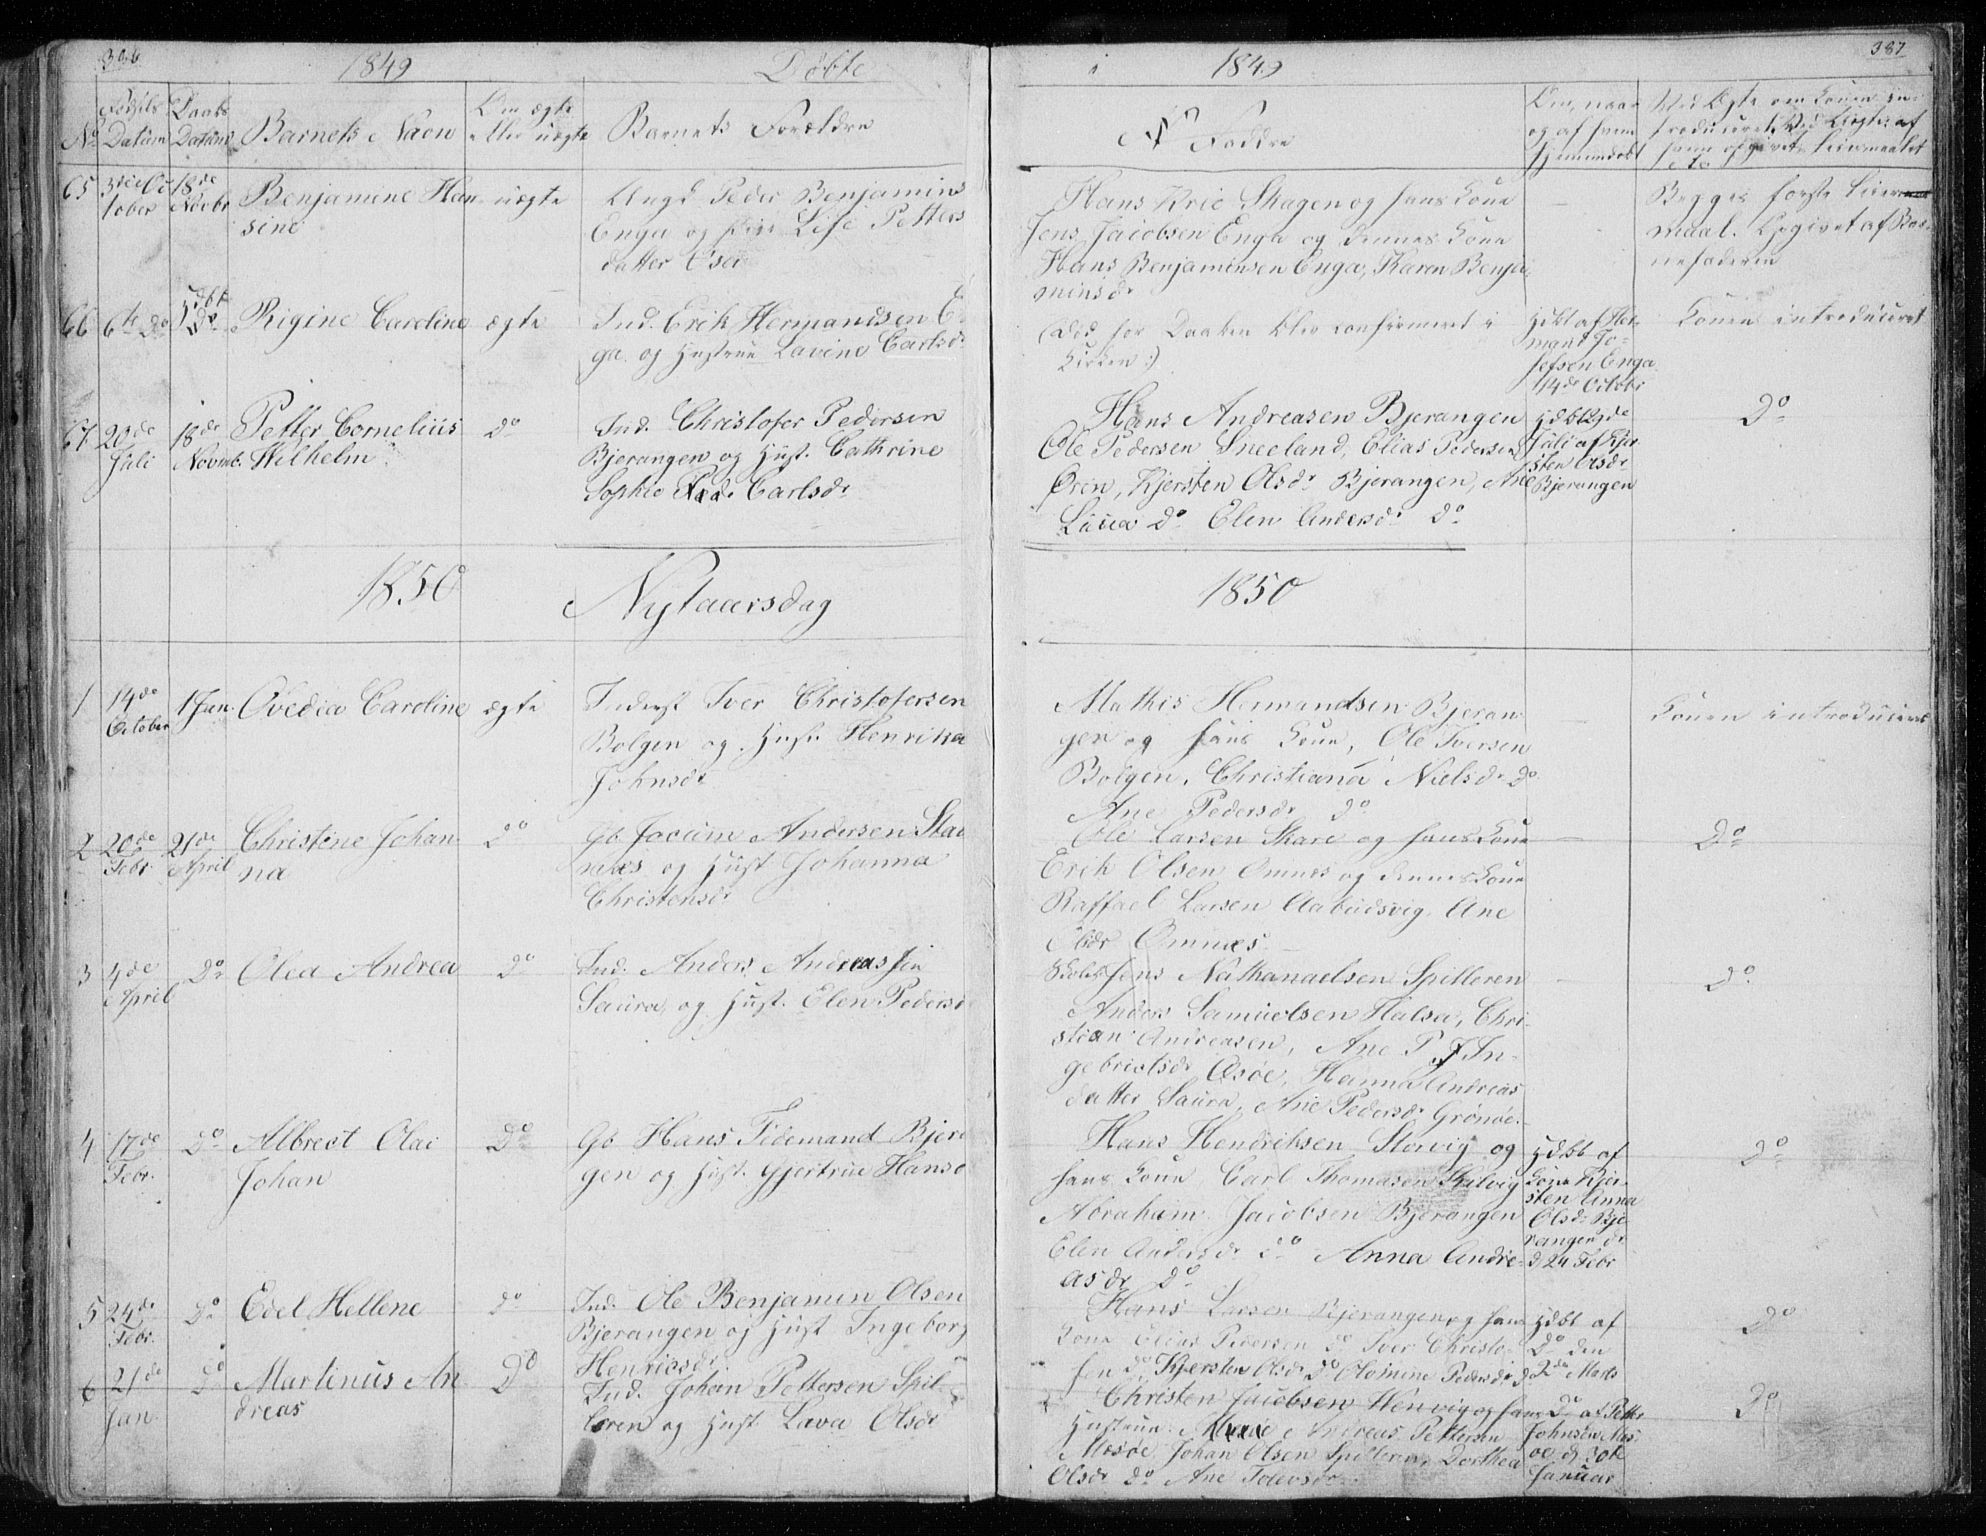 386
1849
Døbte
No
Fødsels
Datum
Daabs
Datum
Barnets Navn
Om ægte
eller uægte
Barnets Forældre
65
3die Oc
tober
18de
Novbr
Benjamine Han
sine
uægte
Ungk Peder Benjamins
Enga og Pige Lise Petters
datter
66
6te Do
Do
Rigine Caroline
ægte
Ind. Erik Hermandsen E
ga og Hustrue Lavine Carlsdr
67
20de
Juli
18de
Novmb.
Petter Cornelius
Wilhelm
Do
Ind. Christofer Pedersen
Bjerangen og Hust. Cathrine
Sophie Carlsdr
1850
Nytaarsdag
1
14de
October
1 Jan.
Ovedia Caroline
ægte
Inderst Iver Christofersen
Bolgen og Hust. Henrika
Johnsdr
2
20de
Febr
21de
April
Christine Johan
na
Do
Gb. Jocum Andersen
og Hust Johanna
Christensdr
3
4de
April
Do
Olea Andrea
Do
Ind. Anders Andreassen
Saura og Hust. Elen Pedersd
4
17de
Febr.
Do
Albregt Olai
Johan
Do
Gb Hans Tidemand Bjer
gen og Hust. Gjertrue Hansd
5
24de
Febr.
Do
Edel Hellene
Do
Ind. Ole Benjamin Olsen
Bjerangen og Hust Ingeborg
Henriksdr
6
21de
Jan
Do
Martinus An
dreas
Do
Ind. Johan Pettersen Spil
leren og Hust Lava Olsdr
i 1849
387
Faddre
Om, naar
og af hvem
hjemmedøbt
Ved Ægte om Konen in-
troduceret. Ved Uægte af
hvem opgivet, leiermaalet
etc
Hans Eric Skagen og hans Kone
Jens Jacobsen Enga og dennes Kone
Hans Benjaminsen Enga, Karen Benja
minsdr
Begges første leier
maal. Opgivet af Bar-
nefaderen
(Død før Daaben blev confirmeret i
Kirken :)
Hdbt af Her
mand Jo-
sefsen Enga
14de Octobr
Konen introduceret
Hans Andreasen Bjerangen
Ole Pedersen Sneeland, Elias Pedersen
Øren, Kjersten Olsdr Bjerangen, Ane
Laua Do Elen Andersdr Do
Hdbt 29de
Juli af Kjer
sten Olsdr
Bjerangen
Do
1850
Mathis Hermandsen Bjeran
gen og hans Kone, Ole Iversen
Bolgen, Christiana Nielsdr Do
Ane Pedersdr Do
Konen introduceret
Ole Larsen Skare og hans Kone
Erek Olsen Omnes og dennes Kone
Raffael Larsen Aabudsvig, Ane
Olsdr Omnes
Do
Jens Nathanaelsen Spilleren
Anders Samuelsen Halsa, Chri-
stian Andreasen, Ane P. J. In-
gebrigtsdr Øsøe, Hanna Andreas
datter Saura, Ane Pedersdr Grønøe.
Do
Hans Hendriksen Storvig og
hans Kone Carl Thomasen Storvig
Abraham Jacobsen Bjerangen
Elen Andersdr Do Anna Andre-
asdr Do
Hdbt af
Kone Kjer-
sten Anna
Olsdr Bje
rangen
d 24 Febr
Do
Hans Larsen Bjerangen og hans
Kone Elias Pedersen Do Iver Christo-
sen do, Kjersten Olsdr Do Olomine Pedersdr do
Hdbt af
Do den
2de Marts
Do
Christen Jacobsen Wenvig og hans
Hustrue Andreas Pettersen
Mesøe Johan Olsen Spilleren, Dorthea
Olsdr Do Ane
Do af Petter
Johnsen Mes
øe d 30te
Januar
Do